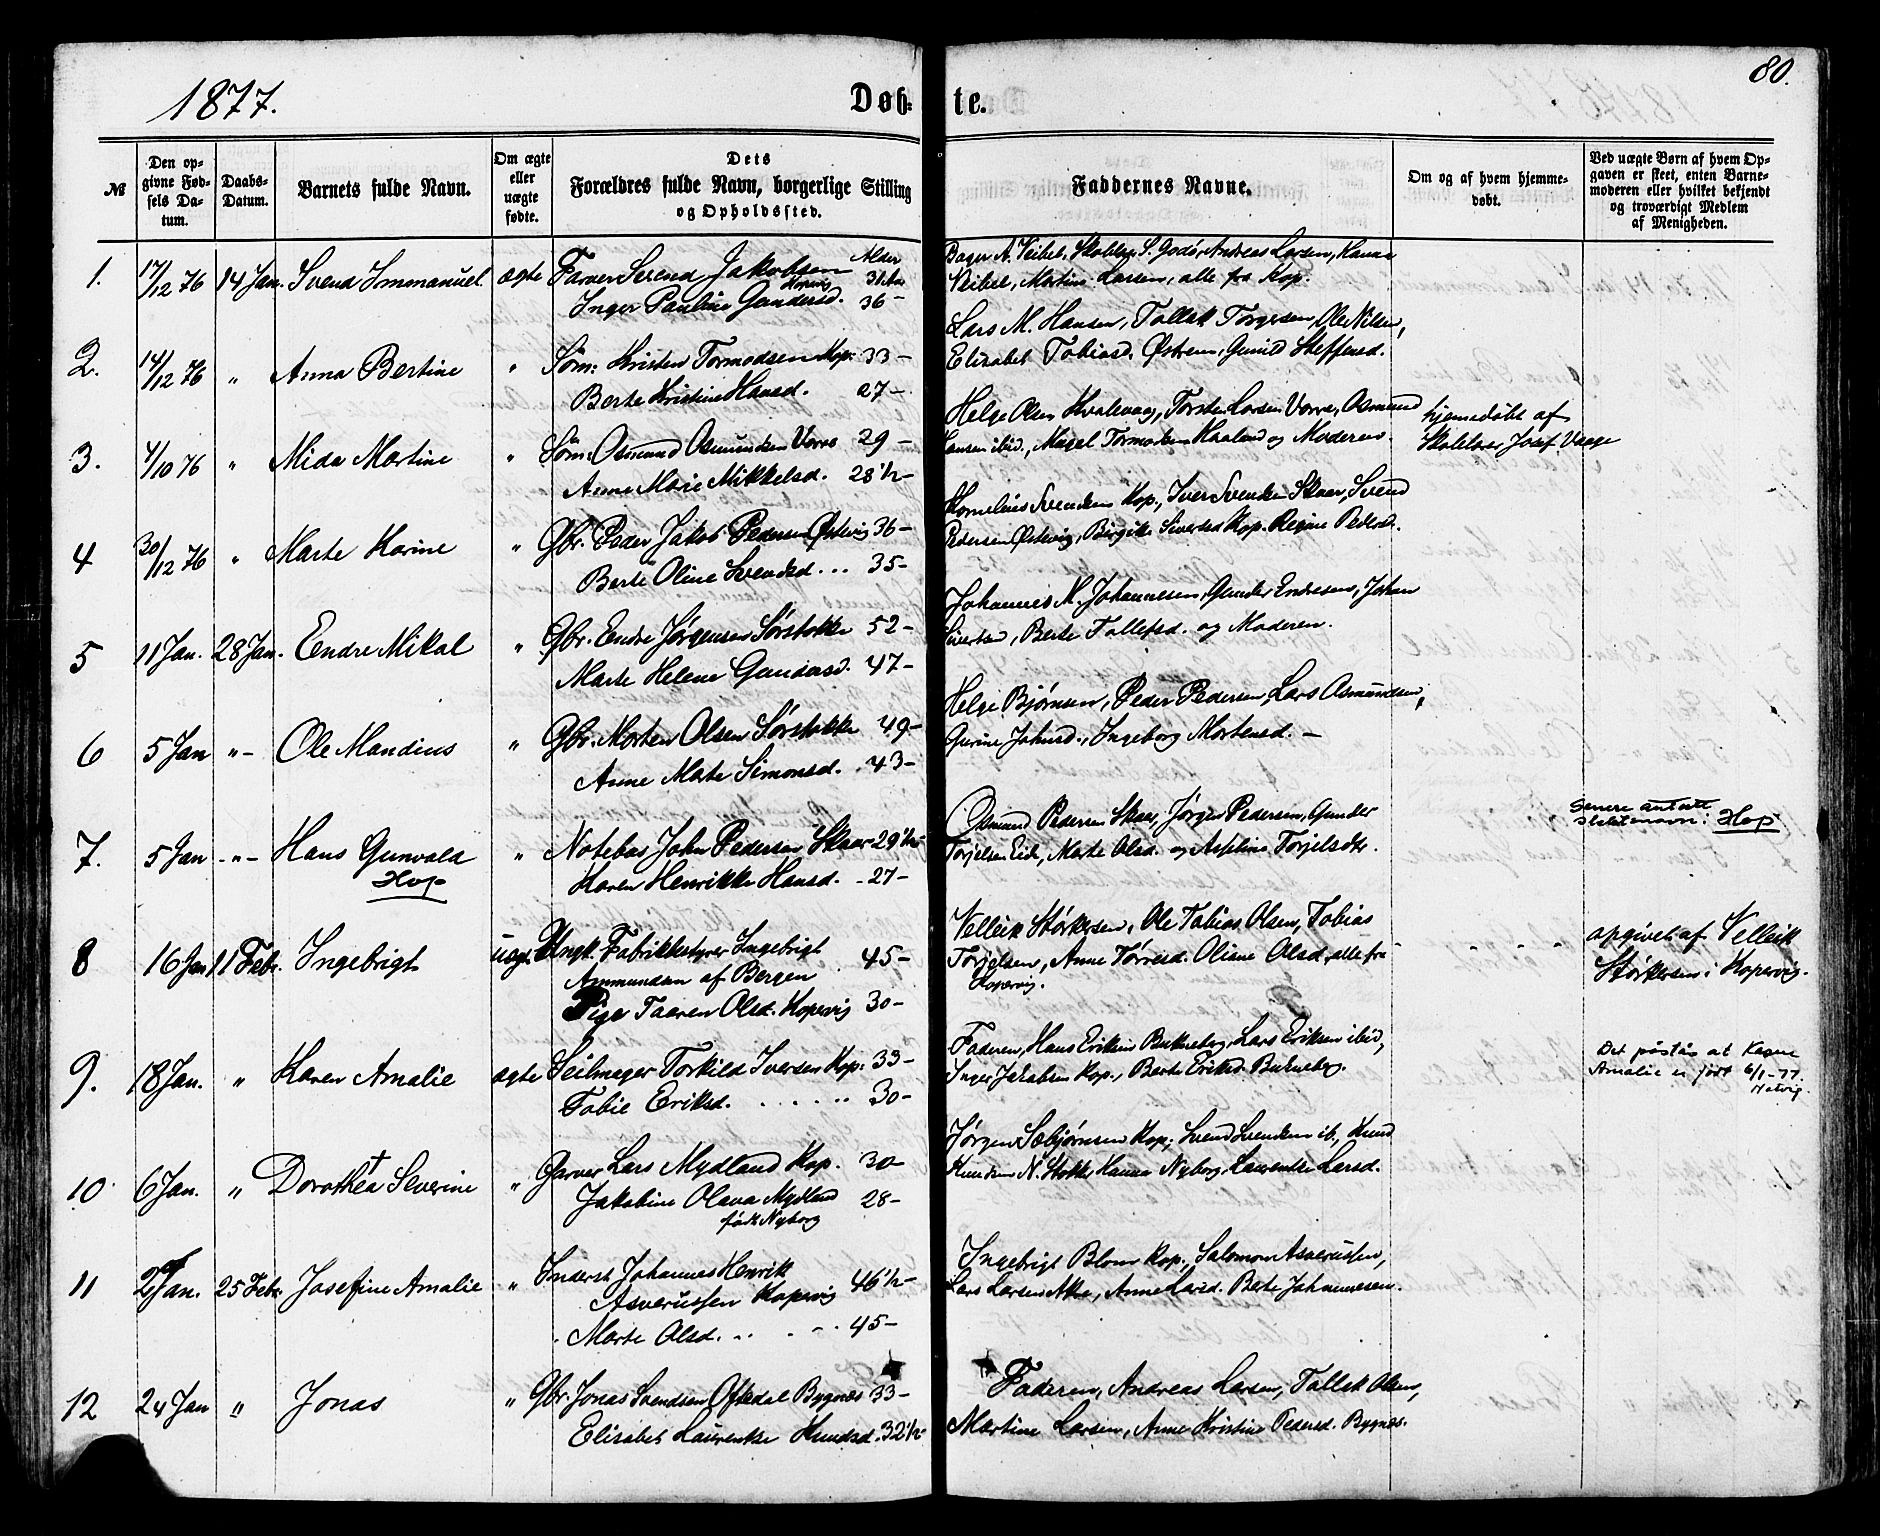 1877.
Døb-
te.
80.
№
Den op-
givne Fød-
sels Da-
tum.
Daabs-
Datum.
Barnets fulde Navn.
Om ægte
eller
uægte
fødte.
Dets
Forældres fulde Navn, borgerlige Stilling
og Opholdssted.
Faddernes Navne.
Om og af hvem hjemme-
døbt.
Ved uægte Børn af hvem Op-
gaven er skeet, enten Barne-
moderen eller hvilket bekjendt
og troværdigt Medlem
af Menigheden.
Alder
1. 17/12 76 14 Jan. Svend Immanuel ægte Farver Svend Jakobsen
Inger Pauline Gundersd. 36-
Bager A. Veibel, S. Godø, Andreas Larsen, Hanna
Veibel, Martine Larsen, alle fra Kop.
2. 14/12 76 " Anna Bertine " Søm: Kristen Tormodsen Kop. 33-
Berte Kristine Hansd. 27-
Lars M. Hansen, Tollak Torgersen, Ole Nilsen,
Elisabet Tobiasd. Østrem, Gunild Steffensd.
3. 4/10 76 " Mida Martine " Søm: Osmund Osmundsen Vorre 29-
Anne Marie Mikkelsd. 28½-
Helge Olsen Kvalevaag, Torsten Larsen Vorre, Osmund
Hansen ibid., Magel Tormodsen Haaland og Moderen.
hjemmedøbt af
Skolelærer Josef Vaage
4 30/12 76 " Marte Karine " Gbr. Peder Jakob Pedersen Østevig 36-
Berte Oline Svendsd... 35-
Kornelius Svendsen Kop., Iver Svendsen Skaar, Svend
Pedersen Østevig, Birgitte Sivertsd Kop. Regine Pedersd.
5 11 Jan. 28 Jan. Endre Mikal " Gbr. Endre Jørgensen Sørstokke 52-
Marte Helene Gundersd. 47-
Johannes M. Johannesen, Gunder Endresen, Johan
Sivertsen, Berte Tollefsd. og Moderen.
6 5 Jan "- Ole Mandius " Gbr. Morten Olsen Sørstokke 49-
Anne Marte Simonsd. 43-
Helge Bjørnsen, Peder Pedersen, Lars Osmundsen,
Gurine Johnsd., Ingeborg Mortensd. -
7. 5 Jan -"- Hans Gunvald " Notebas John Pedersen Skaar 29½-
Hop
Karen Henrikke Hansd. - 27-
Osmund Pedersen Skaar, Jørgen Pedersen, Gunder
Torjelsen Eide, Marte Olsd. og Aseline Torjelsdtr.
Senere antatt
slektsnavn: Hop
8 16 Jan 11 Febr. Ingebrigt uægt. Ungk. Fabrikbestyrer Ingebrigt 45-
Ammundsen af Bergen
Pige Taaren Olsd. Kopervig 30-
Velleik Størkersen, Ole Tobias Olsen, Tobias
Torjelsen, Anne Tørresd. Olisne Olsd, alle fra
Kopervig.
opgivet af Velleik
Størkersen i Kopervig.
9. 18 Jan. " Karen Amalie ægte Seilmager Torkild Iversen Kop: 33-
Tobie Eriksd. ...... 30-
Faderen, Hans Eriksen Bukneberg, Lars Eriksen ibid,
Inger Jakobsen Kop., Berte Eriksd Bukneberg.
Det påstås at Karen
Amalie er født 6/1-77.
10. 6 Jan. " Dorothea Severine † " Garver Lars Mydland Kop. 30-
Jakobine Olava Mydland 28-
født Nyborg
Jørgen Sæbjørnsen Kop., Svend Svendsen ib., Knud
Knudsen N. Stokke, Hanna Nyborg, Laurentse Larsd.
11 2 Jan. 25 Febr. Josefine Amalie " Inderst Johannes Henrik
Asverussen Kopervig 46½-
Marte Olsd. .. .. 45-
Ingebrigt Blom Kop., Salomon Asverussen,
Lars Larsen Akse, Anne Larsd. Berte Johannesen.
12 24 Jan " Jonas " Gbr. Jonas Svendsen Oftedal Bygnes 33-
Elisabet Laurentse Knudsd. 32½-
Faderen, Andreas Larsen, Tollak Olsen,
Martine Larsen, Anne Kristine Pedersd. Bygnes.